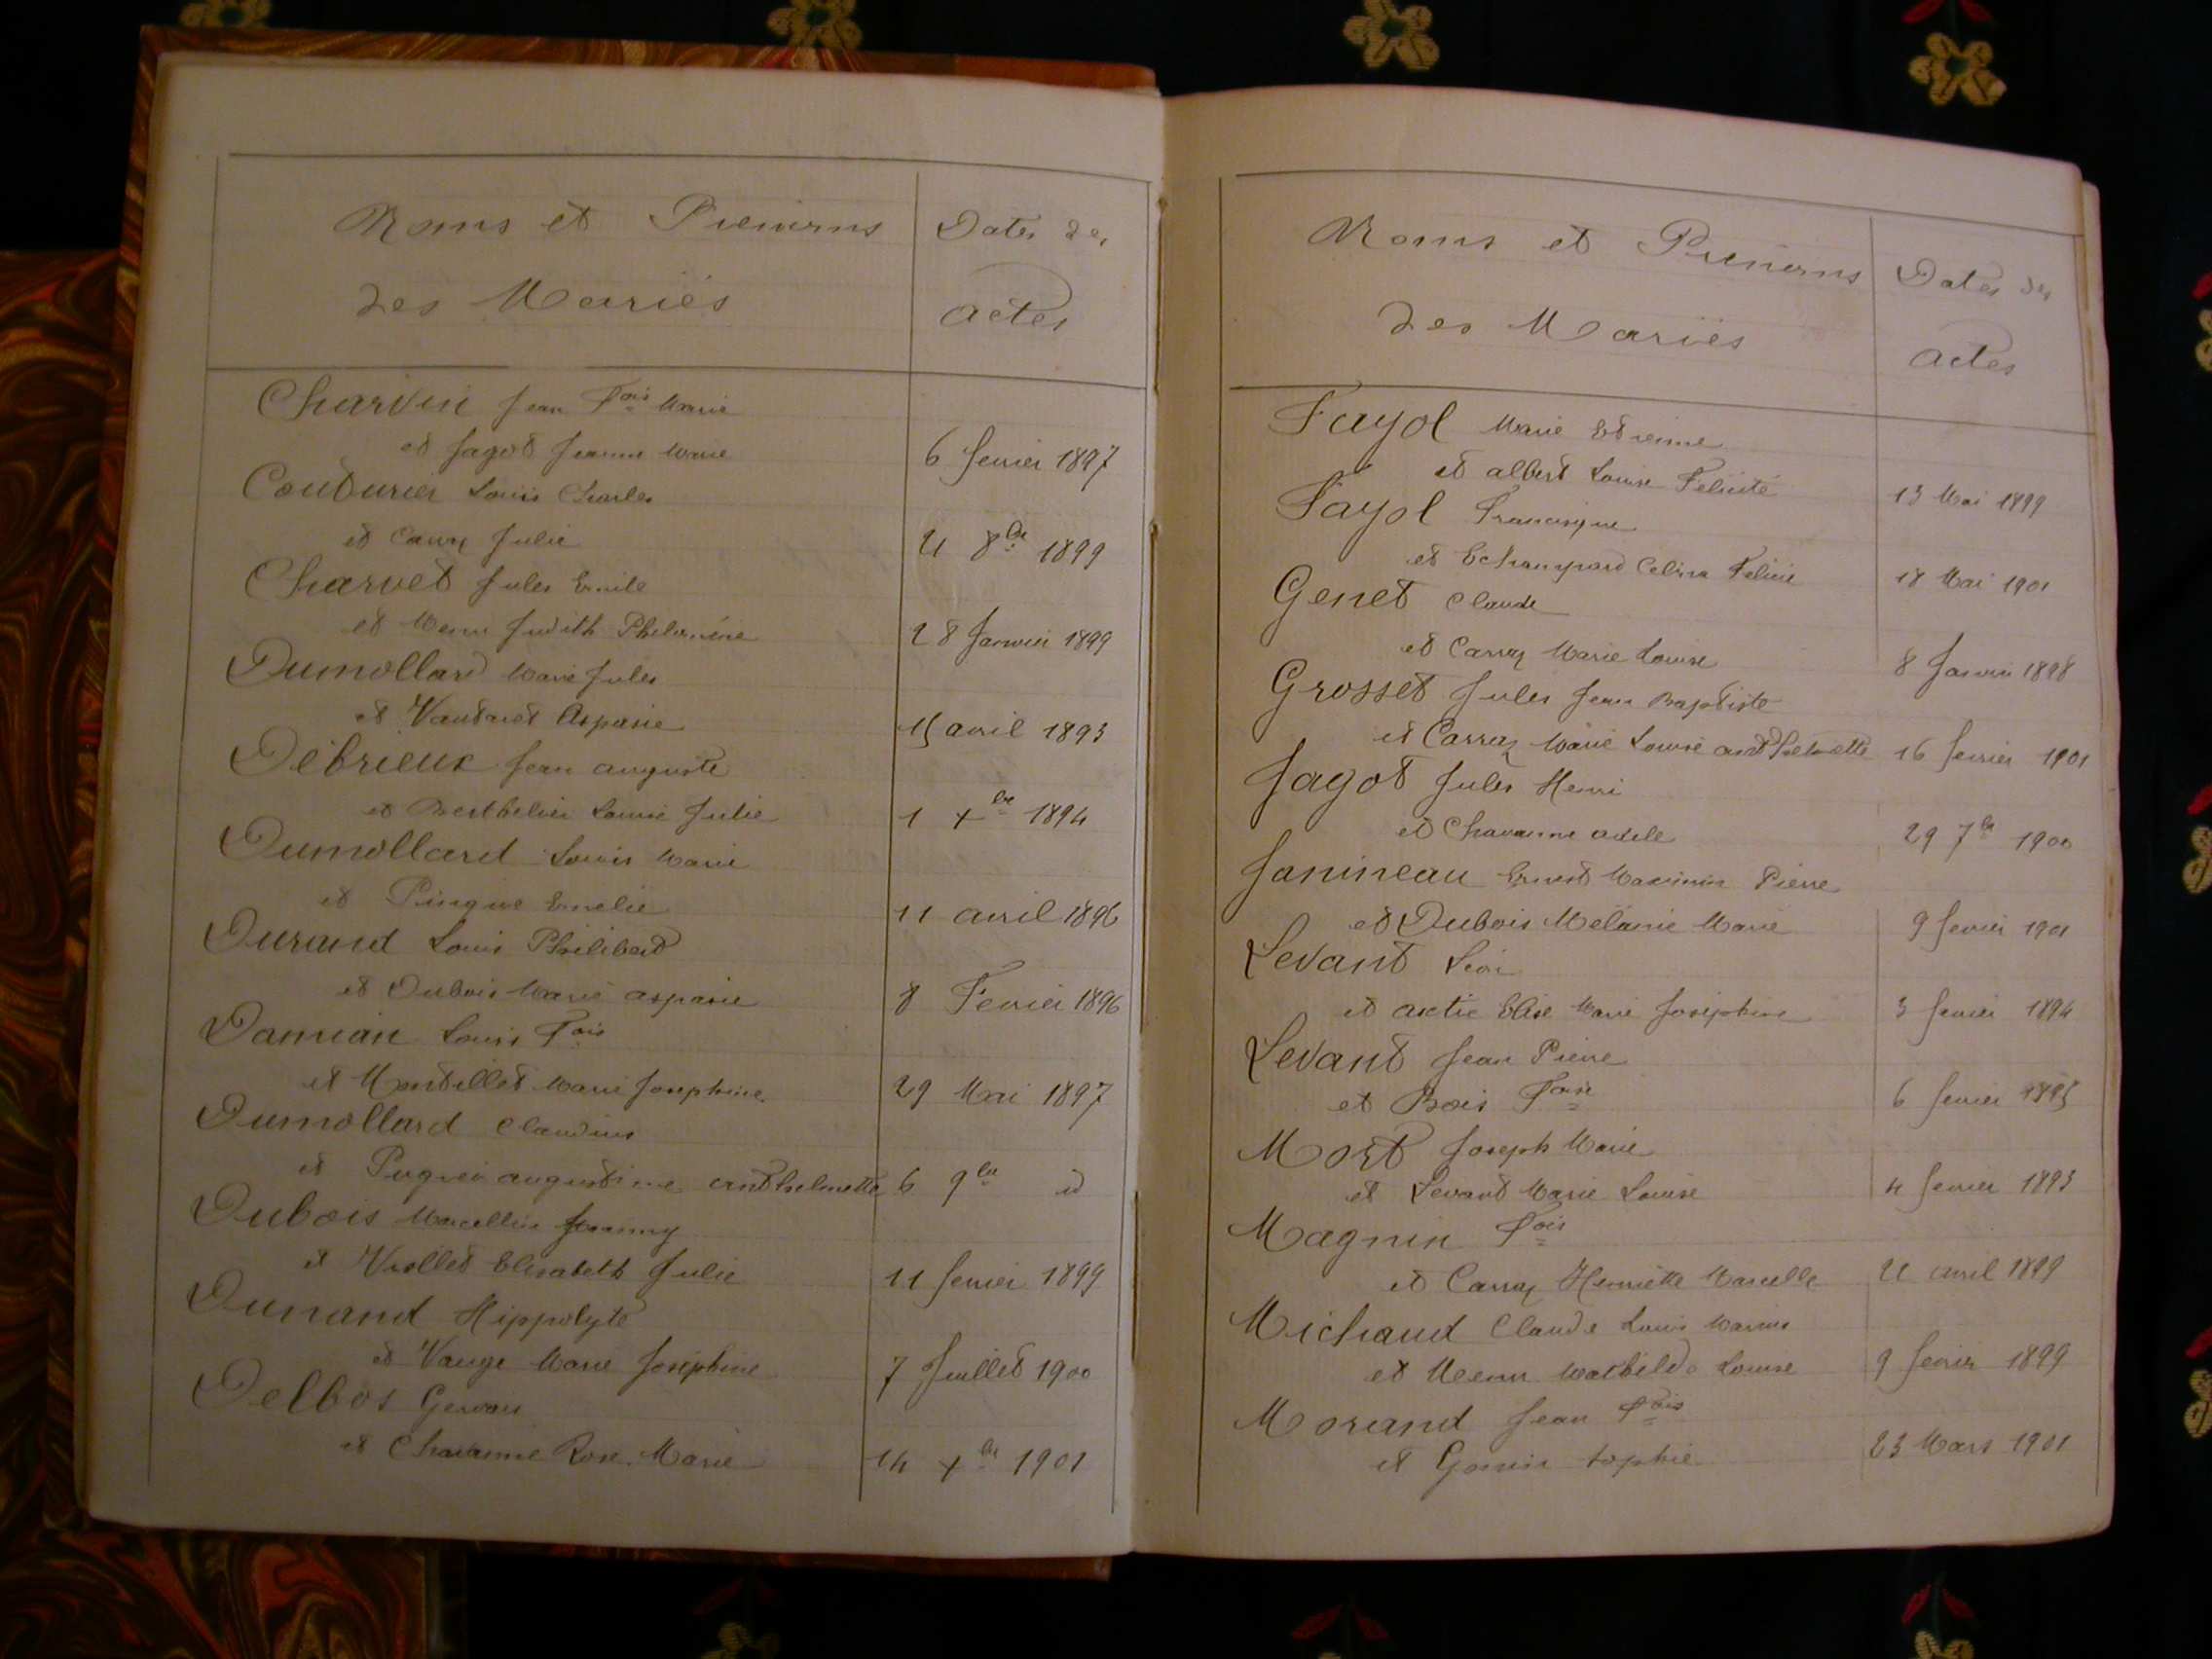 Noms et Prénoms
des Mariés
Dates des
actes
Charvin Jean Fois Marie
et Jagot Jeanne Marie 6 fevrier 1897
Couturier Louis Charles
et Carraz Julie 21 8bre 1899
Charvet Jules Emile
et Judith Philomène 28 Janvier 1899
Dumollard Marie Jules
et Vautaret Aspasie 15 avril 1893
Débrieux Jean auguste
et Berthelier Louise Julie 1 xbre 1894
Dumollard Louis Marie
et Pingue Emelie 11 avril 1896
Durand Louis Philibert
et Dubois Marie aspasie 8 Fevrier 1896
Damian Louis Fois
et Montillet Marie Josephine 29 Mai 1897
Dumollard Claudius
et augustine anthelmette 6 9bre id
Dubois Marcellin Joanny
et Viollet Elisabeth Julie 11 fevrier 1899
Dunand Hippolyte
et Vauge Marie Joséphine 7 Juillet 1900
Delbos Gervais
et Chavanne Rose Marie 14 xbre 1901
Noms et Prénoms
des Mariés
Dates des
actes
Fayol Marie Etienne
et albert Louise Felicité 13 Mai 1899
Fayol Francisque
et Echampard Celina Felicie 18 Mai 1901
Genet Claude
et Carraz Marie Louise 8 Janvier 1898
Grosset Jules Jean Baptiste
et Carraz Marie Louise anthelmette 16 fevrier 1901
Jagot Jules Henri
et Chavanne adele 29 7bre 1900
Janineau Ernest Maximin Pierre
et Dubois Mélanie Marie 9 fevrier 1901
Levant Léon
et Elise Marie Joséphine 3 fevrier 1894
Levant Jean Pierre
et Bois Foise 6 fevrier 1895
Mort Joseph Marie
et Levant Marie Louise 4 fevrier 1893
Magnin Fois
et Carraz Henriette Marcelle 22 avril 1899
Michaud Claude Louis Marius
et Mathilde Louise 9 fevrier 1899
Morand Jean Fois
et Gonin Sophie 23 Mars 1901